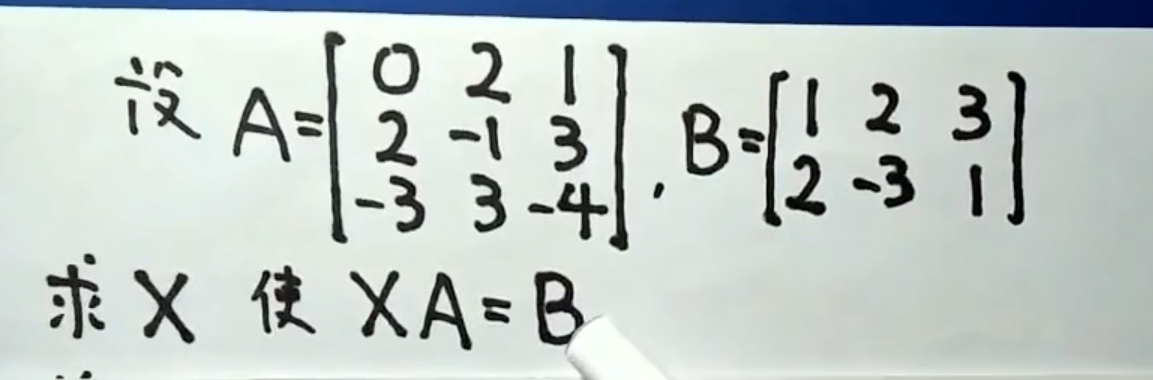 设 A=[0 2 1; 2 -1 3; -3 3 -4], B=[1 2 3; 2 -3 1]
求 X 使 XA=B